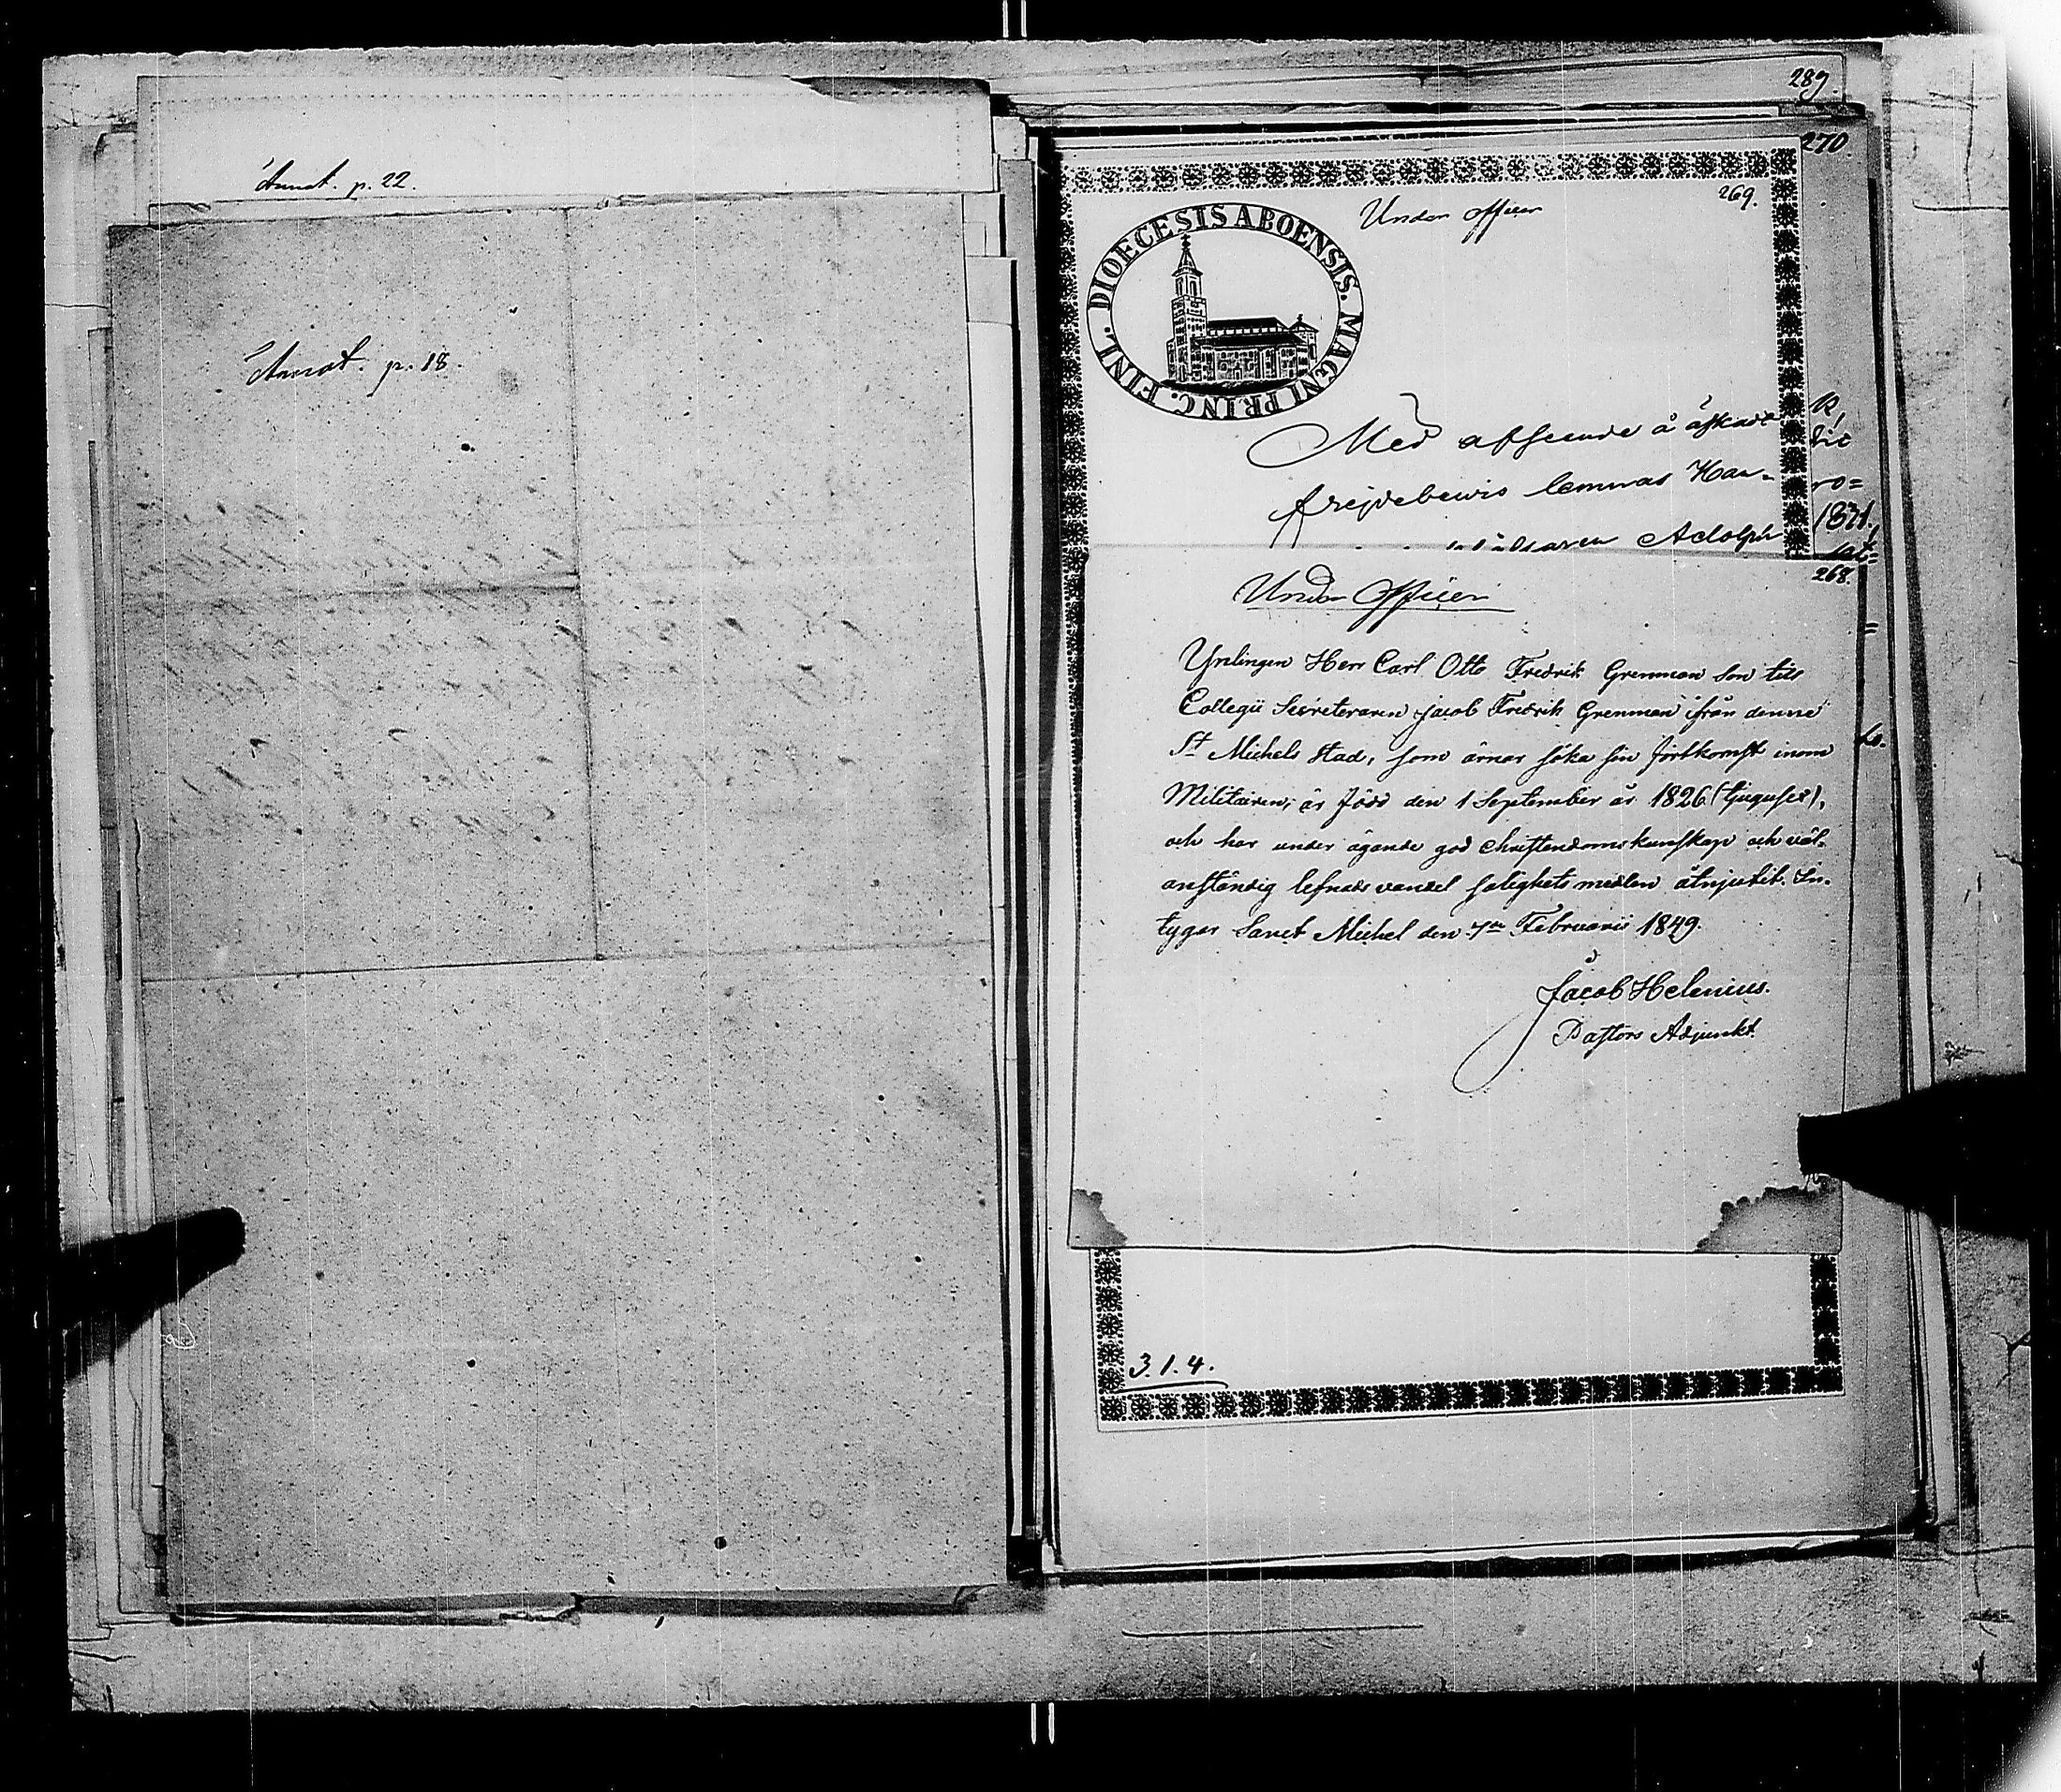 Annot. p. 22.
Annot. p. 18.
289.
270
269.
Under officer
DIOECESIS ABOENSIS. MAGNI PRINC. FINL.
Med afseende å äskadt
frejdebewis lemnas Han-
Adolph
1871.
268.
Under Officer
Ynlingen Herr Carl Otto Fredrik Grenman son till
Collegii Secreteraren Jacob Fredrik Grenman ifrån denne
St Michels stad, som ärnar söka sin fortkomst inom
Militairen, är född den 1 September år 1826 (tjugusex),
och har under ägande god Christendomskunskap och väl-
anständig lefnads vandel salighets medlen åtnjutit. In-
tygar Sanct Michel den 7de Februarii 1849.
Jacob Helenius.
Pastors Adjunkt.
3.1.4.